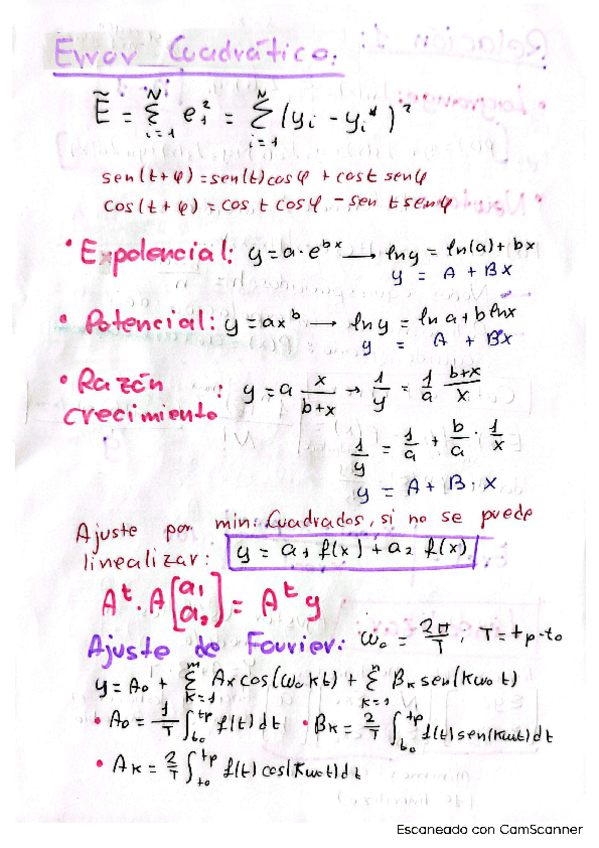 Error Cuadrático:
Ẽ = Σ_{i=1}^{N} e_i² = Σ_{i=1}^{N} (y_i - y_i*)²
sen(t+φ) = sen(t)cosφ + cost senφ
cos(t+φ) = cos t cosφ - sen t senφ
• Expolencial: y = a·e^{bx} → ln y = ln(a) + bx
y = A + Bx
• Potencial: y = ax^b → ln y = ln a + b ln x
y = A + Bx
• Razón : y = a x/(b+x) → 1/y = 1/a (b+x)/x
crecimiento
1/y = 1/a + b/a · 1/x
y = A + B · X
Ajuste por min. Cuadrados, si no se puede
linealizar: y = a₁ f(x) + a₂ f(x)
A^t · A [a₁ a₂] = A^t y
Ajuste de Fourier: ω₀ = 2π/T ; T = tp - t₀
y = A₀ + Σ_{k=1}^{m} Ak cos(ω₀ k t) + Σ_{k=1}^{n} Bk sen(kω₀ t)
• A₀ = 1/T ∫_{t₀}^{tp} f(t) dt • Bk = 2/T ∫_{t₀}^{tp} f(t) sen(kω₀t) dt
• Ak = 2/T ∫_{t₀}^{tp} f(t) cos(kω₀t) dt
Escaneado con CamScanner